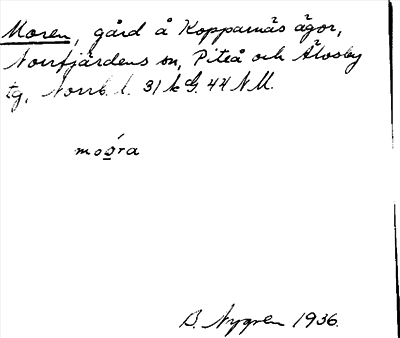 Moren, gård å Kopparnäs ägor,
Norrfjärdens sn, Piteå och Älvsby
tg, Norrb. l. 31 k G. 44 N M.
moóra
B. Nygren 1936.